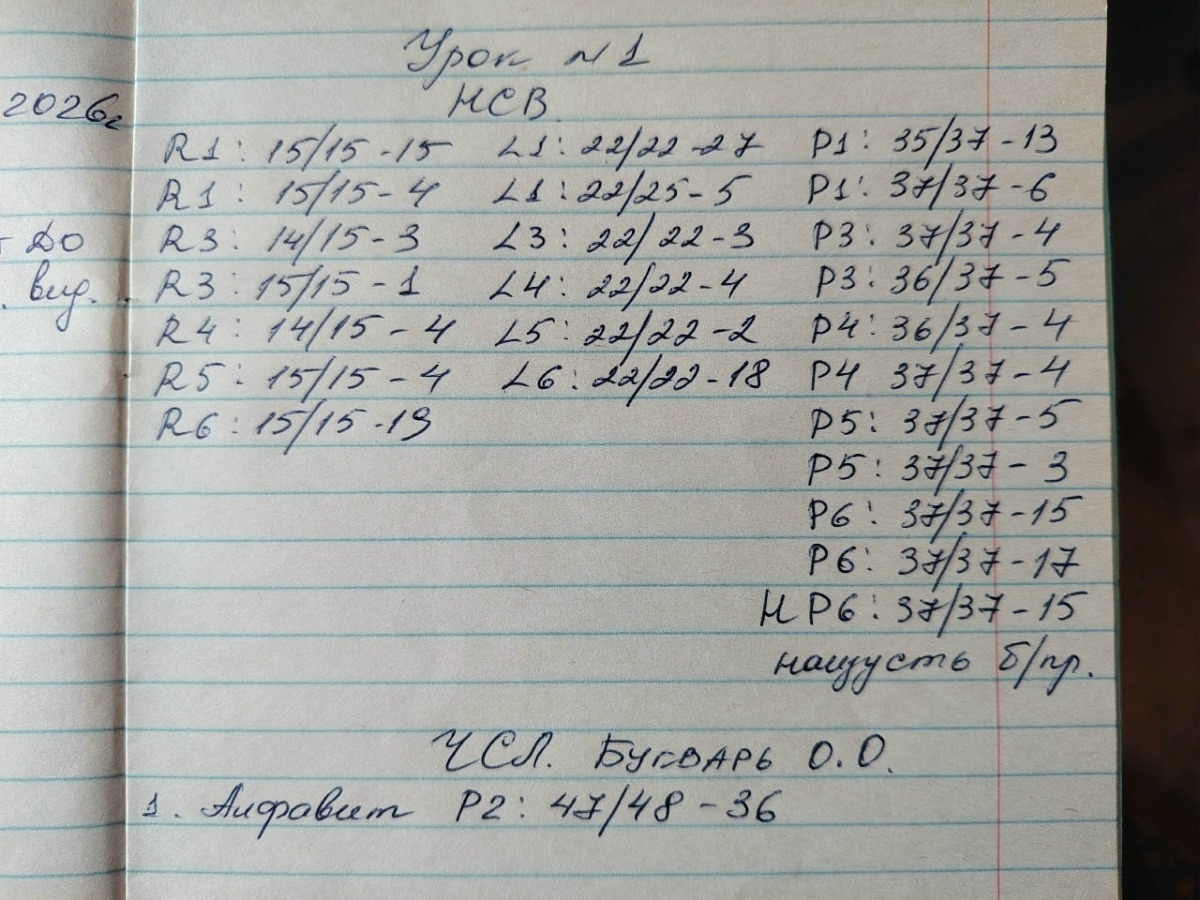 Урок №1
НСВ.
2026г
R1: 15/15-15 L1: 22/22-27 P1: 35/37-13
R1: 15/15-4 L1: 22/25-5 P1: 37/37-6
до
R3: 14/15-3 L3: 22/22-3 P3: 37/37-4
. вид.
R3: 15/15-1 L4: 22/22-4 P3: 36/37-5
R4: 14/15-4 L5: 22/22-2 P4: 36/37-4
R5: 15/15-4 L6: 22/22-18 P4 37/37-4
R6: 15/15-19 P5: 37/37-5
P5: 37/37-3
P6: 37/37-15
P6: 37/37-17
Н P6: 37/37-15
наизусть б/пр.
ЧСЛ. Букварь О.О.
1. Алфавит P2: 47/48-36